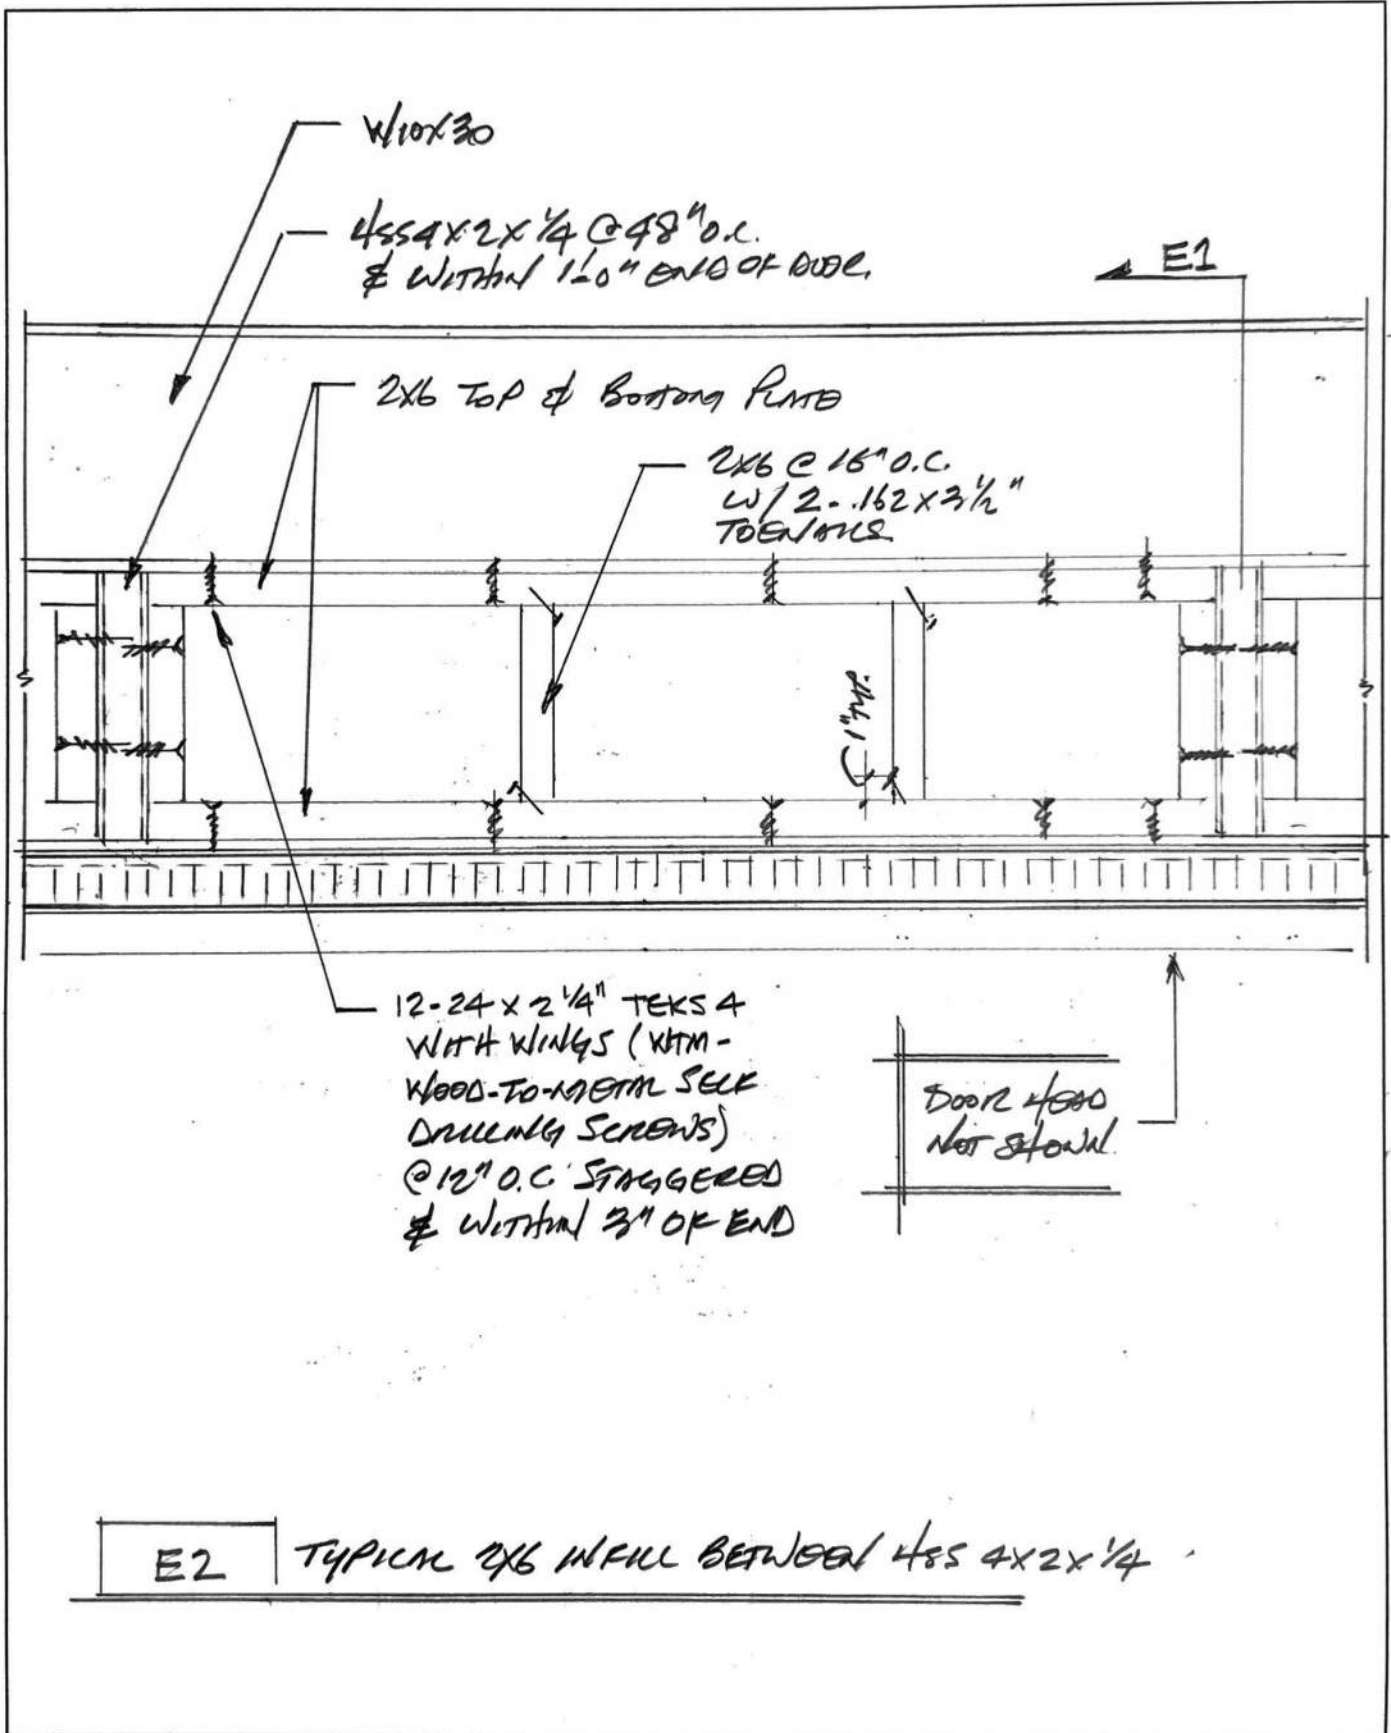 W10X30
HSS4X2X1/4 @ 48" O.C.
& WITHIN 1'-0" END OF DOOR.
E1
2X6 TOP & BOTTOM PLATE
2X6 @ 16" O.C.
W/ 2-.162X3½"
TOENAILS
1" TYP.
12-24 X 2 1/4" TEKS 4
WITH WINGS (WTM-
WOOD-TO-METAL SELF
DRILLING SCREWS)
@ 12" O.C. STAGGERED
& WITHIN 3" OF END
DOOR HEAD
NOT SHOWN.
E2 TYPICAL 2X6 INFILL BETWEEN HSS 4X2X1/4